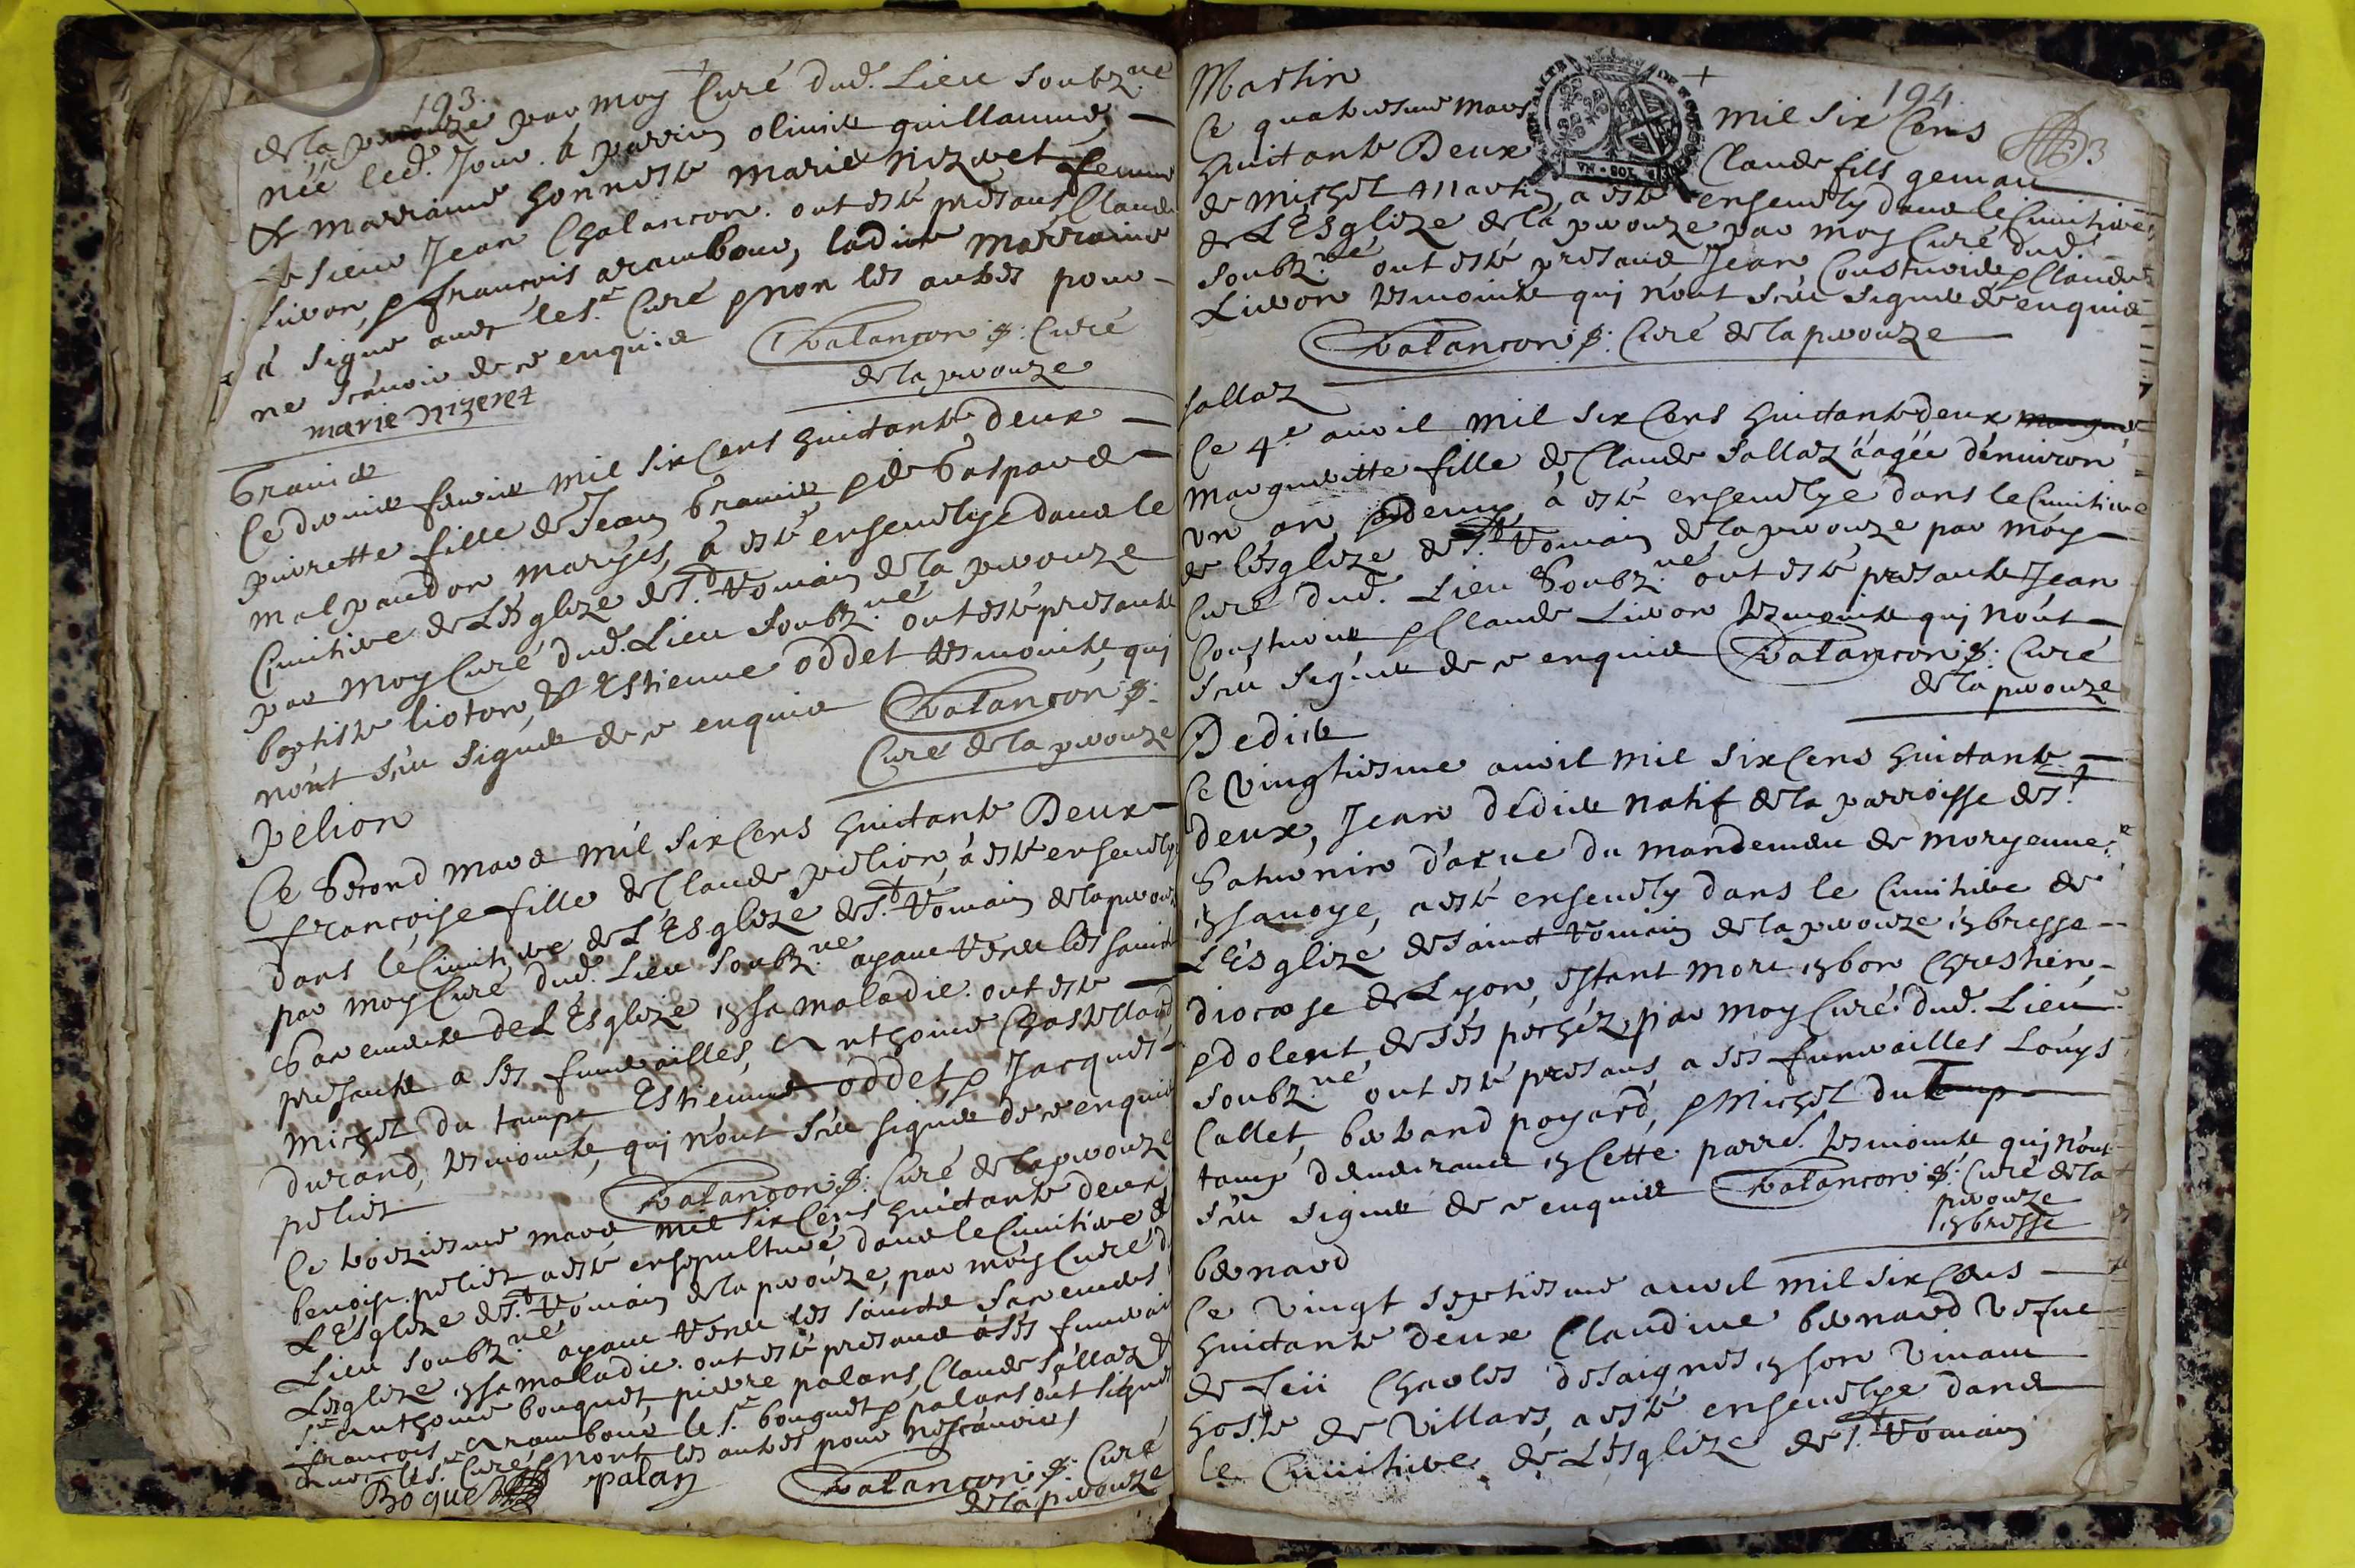 193.
de la perouze par moy Curé dud. Lieu soubz.né
née led. Jour. à parrin olivier guillaume
& marraine honneste marie nizeret femme
de sieur Jean Chalancon. ont esté presans Claude
Livon, & françois arambour, ladite marraine
à signé avec le s.r Curé & non les autres pour
ne sçavoir de ce enquis Chalancon p: Curé
de la perouze
marie nizeret
Granier
Ce dernier fevrier mil six Cens huictante deux
pierrette fille de Jean Granier & de Gasparde
malpaudon mariés, à esté ensevelye dans le
Cimitiere de L'Esglize de S.t Romain de la perouze
par moy Curé dud. Lieu soubz.né ont esté presants
baptiste lioton, & Estienne oddet tesmoints qui
n'ont sceu signer de ce enquis Chalancon p:
Curé de la perouze
pelion
Ce Second mars mil six Cens huictante Deux
françoise fille de Claude pelion, à esté ensevelye
dans le Cimitiere de L'Esglize de S.t Romain de la perouze
par moy Curé dud. Lieu soubz.né ayant receu les saincts
Sacements de L'Esglize en sa maladie. ont esté
presants a ses funerailles, Anthoine Chastellard
Michel du tamps Estienne oddet & Jacques
durand, tesmoints, qui n'ont sceu signer de ce enquis
Chalancon p: Curé de la perouze
pelier
Ce troiziesme mars mil six Cens huictante deux
benoise pelier a esté ensepulturé dans le Cimitiere de
L'Esglize de S.t Romain de la perouze, par moy Curé d.
Lieu soubz.né ayant receu les saincts sacements
L'esglize en sa maladie. ont esté presans à ses funerail
s.r anthoine bouquet, pierre palans, Claude sallaz &
françois Arambour le s.r bouquet & palans ont signé
avec le s.r Curé & non les autres pour ne sçavoir
Boquet palan Chalancon p: Curé
de la perouze
194
3
Martin
Ce quatriesme Mars mil six Cens
huictante Deux Claude fils gemau
de Michel Martin, a esté ensevely dans le Cimitiere
de L'Esglize de la perouze par moy Curé dud.
soubz.né ont esté presans Jean Consturier & Claude
Livon tesmoints qui n'ont sceu signer de enquis
Chalancon p: Curé de la perouze
sallaz
Ce 4.e avril mil six Cens huictante deux
Margueritte fille de Claude Sallaz aagée d'environ
un an & demy, à esté ensevelye dans le Cimitiere
de l'esglize de S.t Romain de la perouze par moy
Curé dud. Lieu soubz.né ont esté presants Jean
Consturier & Claude Livon tesmoints qui n'ont
sceu signer de ce enquis Chalancon p: Curé
de la perouze
Dedier
Ce vingtiesme avril mil six Cens huictante
deux, Jean dedier natif de la parroisse de S.t
Saturnin d'arue du mandement de moryenne
en savoye, a esté ensevely dans le Cimitiere de
L'Esglize de sainct Romain de la perouze en bresse
diocese de Lyon, estant mort en bon Chrestien
& dolent de ses pechéz par moy Curé dud. Lieu
soubz.né ont esté presans a ses funerailles Louys
Collet, bertrand poyard, & Michel du
tamps demeurant en Cette parre. tesmoints qui n'ont
sceu signer de ce enquis Chalancon p: Curé de la
perouze
en bresse
bernard
Ce vingt septiesme avril mil six Cens
huictante deux Claudine bernard vefue
de feu Charles desaignes, en son vivant
hoste de Villars, a esté ensevelye dans
le Cimitiere de L'Esglize de S.t Romain